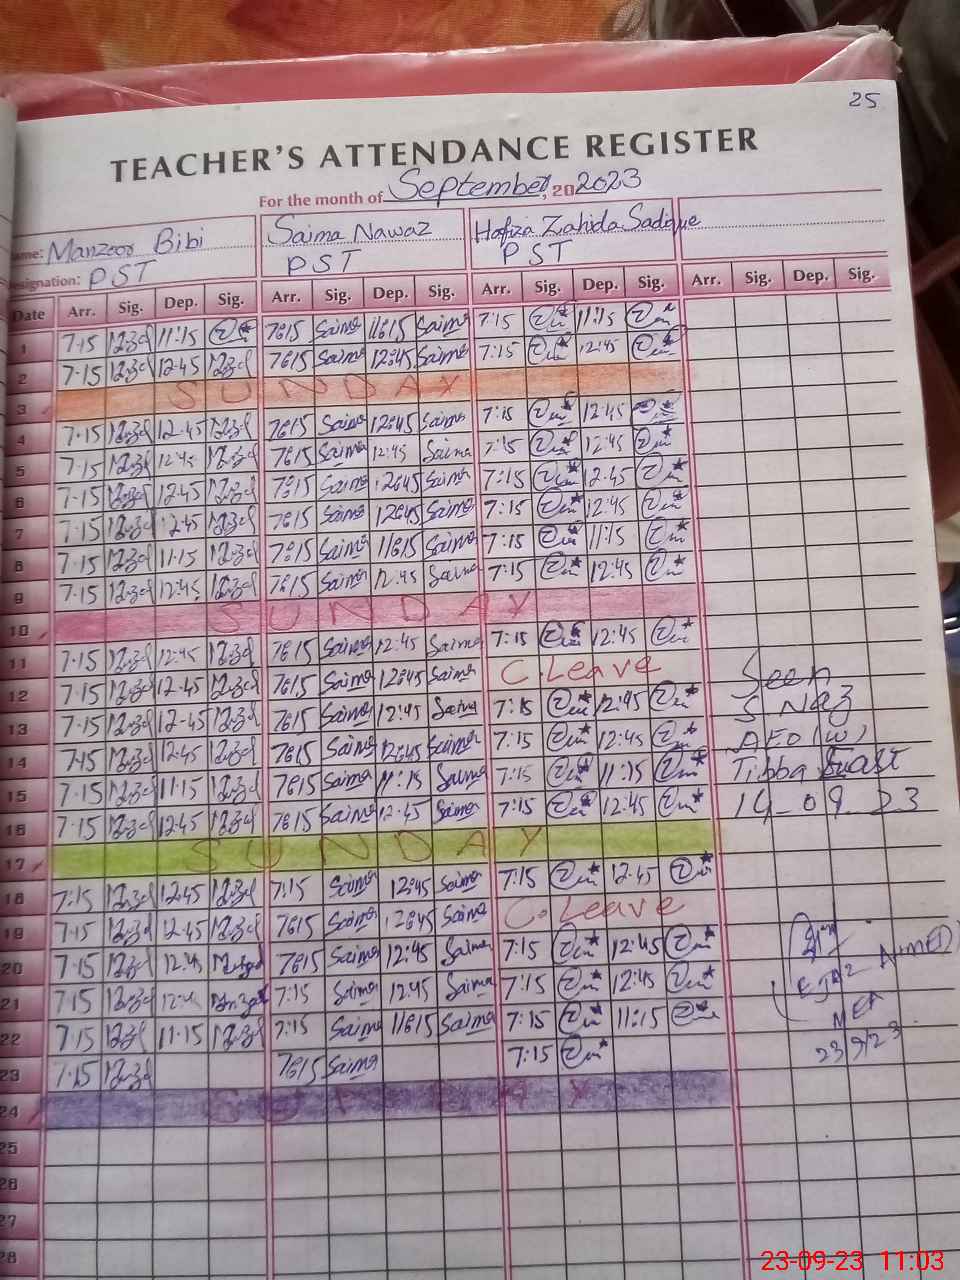 25
TEACHER'S ATTENDANCE REGISTER
For the month of September, 20 2023
ame: Manzoor Bibi Saima Nawaz Hafiza Zahida Sadique
esignation: PST PST PST
Date Arr. Sig. Dep. Sig. Arr. Sig. Dep. Sig. Arr. Sig. Dep. Sig. Arr. Sig. Dep. Sig.
1 7:15 11:15 7:15 Saima 11:15 Saima 7:15 11:15
2 7:15 12:45 7:15 Saima 12:45 Saima 7:15 12:45
3 SUNDAY
4 7:15 12:45 7:15 Saima 12:45 Saima 7:15 12:45
5 7:15 12:45 7:15 Saima 12:45 Saima 7:15 12:45
6 7:15 12:45 7:15 Saima 12:45 Saima 7:15 12:45
7 7:15 12:45 7:15 Saima 12:45 Saima 7:15 12:45
8 7:15 11:15 7:15 Saima 11:15 Saima 7:15 11:15
9 7:15 12:45 7:15 Saima 12:45 Saima 7:15 12:45
10 SUNDAY
11 7:15 12:45 7:15 Saima 12:45 Saima 7:15 12:45
12 7:15 12:45 7:15 Saima 12:45 Saima C.Leave
13 7:15 12:45 7:15 Saima 12:45 Saima 7:15 12:45
14 7:15 12:45 7:15 Saima 12:45 Saima 7:15 12:45
15 7:15 11:15 7:15 Saima 11:15 Saima 7:15 11:15
16 7:15 12:45 7:15 Saima 12:45 Saima 7:15 12:45
17 SUNDAY
18 7:15 12:45 7:15 Saima 12:45 Saima 7:15 12:45
19 7:15 12:45 7:15 Saima 12:45 Saima C.Leave
20 7:15 12:45 7:15 Saima 12:45 Saima 7:15 12:45
21 7:15 12:45 7:15 Saima 12:45 Saima 7:15 12:45
22 7:15 11:15 7:15 Saima 11:15 Saima 7:15 11:15
23 7:15 7:15 Saima 7:15
24 SUNDAY
25
26
27
28
Seen
S Naz
AEO (W)
Tibba East
14_09_23
EJAZ AHMED
MEA
23/9/23
23-09-23 11:03